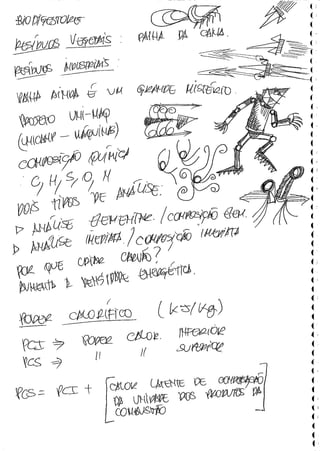 BIODIGESTORES
RESÍDUOS VEGETAIS : PALHA DA CANA.
RESÍDUOS INDUSTRIAIS :
PALHA AINDA É UM GRANDE MISTÉRIO.
PROJETO UNI-MAQ
(UNICAMP – MÁQUINAS)
COMPOSIÇÃO QUÍMICA
: C, H, S, O, N
DOIS TIPOS DE ANÁLISE.
▷ ANÁLISE ELEMENTAR. / COMPOSIÇÃO ELEM.
▷ ANÁLISE IMEDIATA / COMPOSIÇÃO IMEDIATA
POR QUE CRIAR CARVÃO?
AUMENTA A DENSIDADE ENERGÉTICA.
PODER CALORÍFICO (kJ/kg)
PCI ⇒ PODER CALOR. INFERIOR
PCS ⇒ " " SUPERIOR
PCS = PCI + [CALOR LATENTE DE
DA UMIDADE DOS PRODUTOS DA
COMBUSTÃO]